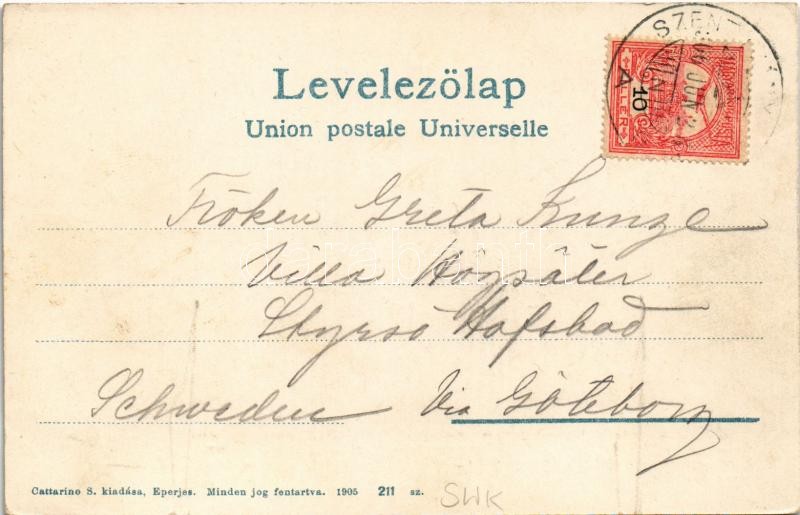 Levelezölap
Union postale Universelle
SZENT
JUN
A
10
FILLER
Fröken Greta Kunze
Villa Högsäter
Styrsö Hafsbad
Schweden Via Göteborg
Cattarino S. kiadása, Eperjes. Minden jog fentartva. 1905 211 sz.
SWK